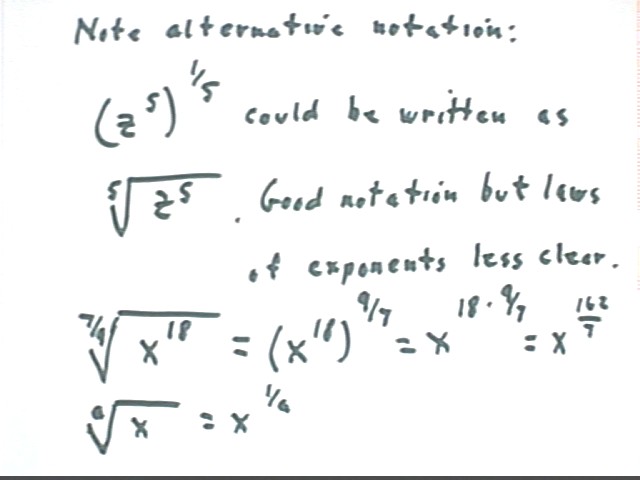 Note alternative notation:
(z^5)^{1/5} could be written as
\sqrt[5]{z^5}. Good notation but laws
of exponents less clear.
\sqrt[7/9]{x^{18}} = (x^{18})^{9/7} = x^{18·9/7} = x^{\frac{162}{7}}
\sqrt[a]{x} = x^{1/a}